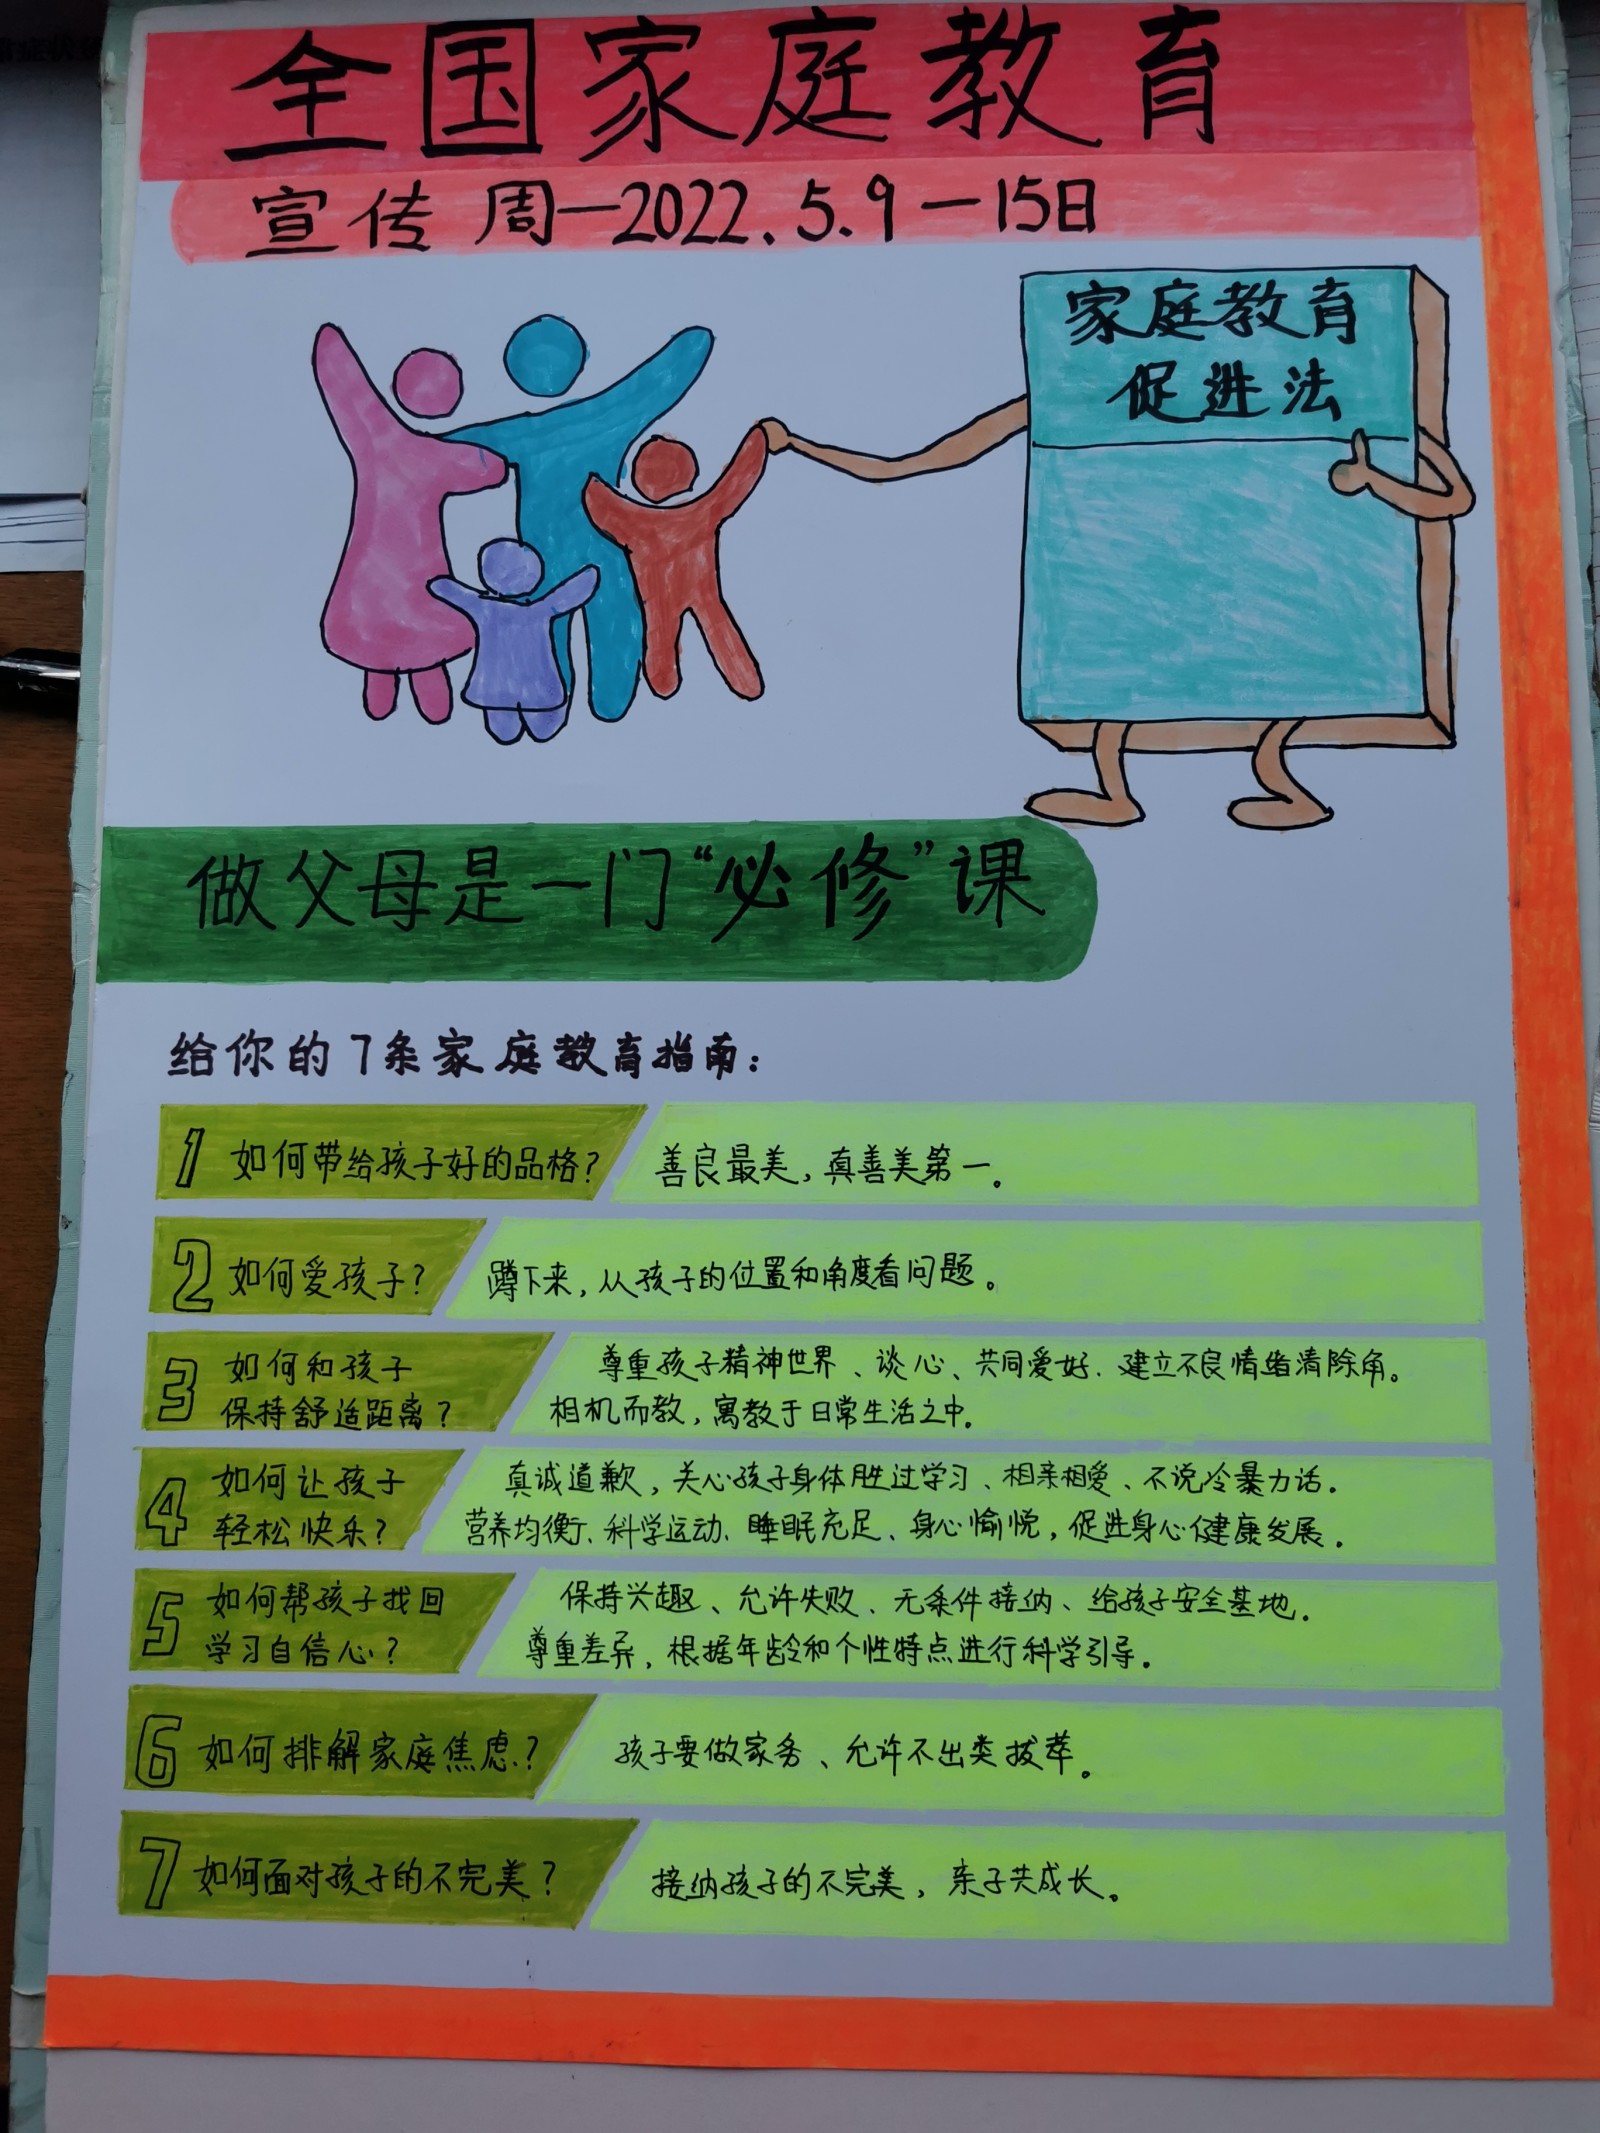 全国家庭教育
宣传周—2022.5.9—15日
家庭教育
促进法
做父母是一门“必修”课
给你的7条家庭教育指南:
1 如何带给孩子好的品格?
善良最美,真善美第一。
2 如何爱孩子?
蹲下来,从孩子的位置和角度看问题。
3 如何和孩子
保持舒适距离?
尊重孩子精神世界、谈心、共同爱好、建立不良情绪清除角。
相机而教,寓教于日常生活之中。
4 如何让孩子
轻松快乐?
真诚道歉,关心孩子身体胜过学习、相亲相爱、不说冷暴力话。
营养均衡、科学运动、睡眠充足、身心愉悦,促进身心健康发展。
5 如何帮孩子找回
学习自信心?
保持兴趣、允许失败、无条件接纳、给孩子安全基地。
尊重差异,根据年龄和个性特点进行科学引导。
6 如何排解家庭焦虑?
孩子要做家务、允许不出类拔萃。
7 如何面对孩子的不完美?
接纳孩子的不完美,亲子共成长。